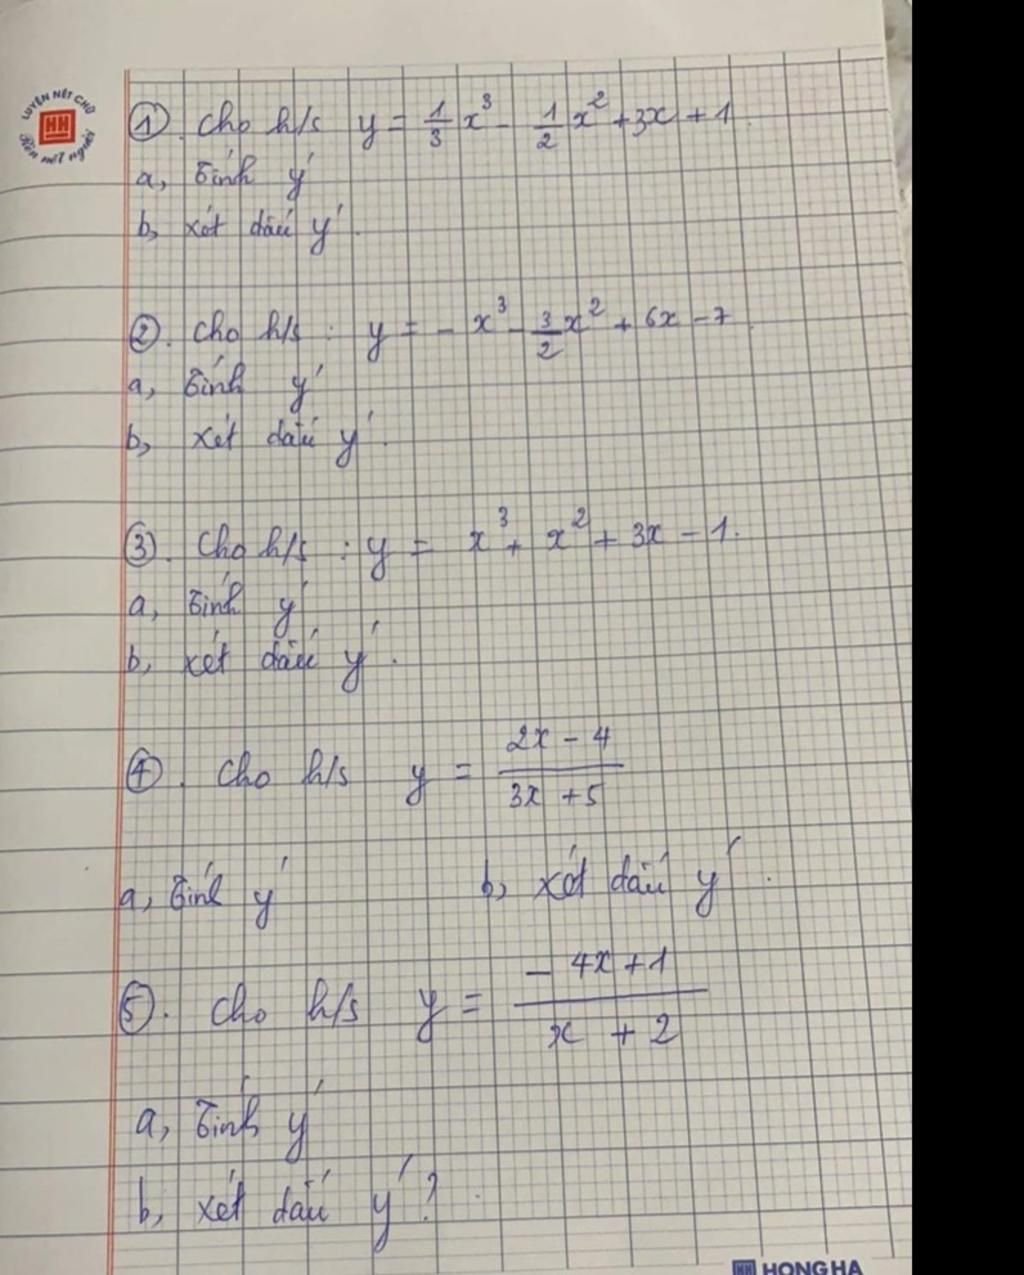 LUYỆN NÉT CHỮ
HH
Rèn nết người
①. Cho h/s y = 1/3 x³ - 1/2 x² + 3x + 1.
a, Tính y'
b, xét dấu y'.
②. Cho h/s : y = - x³ - 3/2 x² + 6x - 7
a, Tính y'
b, xét dấu y'.
③. Cho h/s : y = x³ + x² + 3x - 1.
a, Tính y'
b, xét dấu y'.
④. Cho h/s y = (2x - 4)/(3x + 5)
a, Tính y' b, xét dấu y'.
⑤. Cho h/s y = (- 4x + 1)/(x + 2)
a, Tính y'
b, xét dấu y'?
HH HONG HA